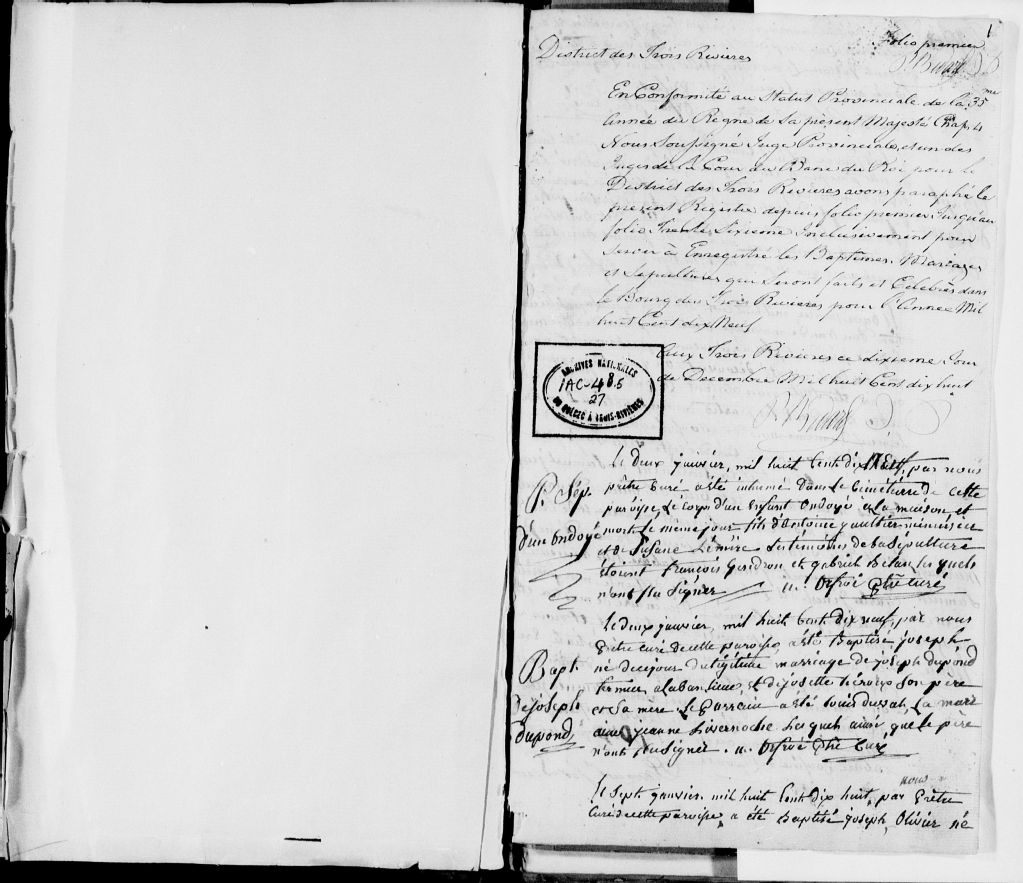 1
folio premier
District des Trois Rivieres
En Conformité au Statut Provinciale de la 35me
Année du Regne de Sa présent Majesté Chap. 4
Nous Soussigné Juge Provinciale, et un des
Juges de la Cour du Banc du Roi pour le
District des Trois Rivieres avons paraphé le
présent Registre depuis folio premier Jusqu'au
folio Trente Sixieme Inclusivement pour
Servir à Enregistré les Baptemes, Mariages
et Sepultures qui Seront faits et Célébrés dans
le Bourg des Trois Rivieres pour l'Année Mil
huit Cent dix Neuf
Aux Trois Rivieres ce dixieme Jour
de Decembre Mil huit Cent dix huit
ARCHIVES NATIONALES
1AC-48.5
27
DU QUÉBEC À TROIS-RIVIÈRES
Le deux janvier, mil huit Cent dix Neuf, par nous
prêtre Curé a été inhumé dans Le Cimetiere de cette
P. Sép.
paroisse, Le corps d'un Enfant ondoyé a la maison et
d'un ondoyé
mort le même jour fils d'antoine gaultier menuisier
et de Susane Lemire Les témoins de la Sépulture
étoient françois gendron et gabriel Belan les quels
n'ont pu Signer
Ptre Curé
Le deux janvier, mil huit Cent dix neuf, par nous
Prêtre curé de cette paroisse, a été Baptisé joseph
Bapt.
né de ce jour du légitime marriage de joseph dupond
de joseph
fermier a la banlieue, et de josette héroux Son père
dupond
et Sa mère. Le Parrain a été Louis dussat, La marr
aine jeanne Livernoche Lesquels ainsi que le père
n'ont pu Signer
Ptre Curé
nous
Le Sept janvier mil huit Cent dix huit, par Prêtre
Curé de cette paroisse, a été Baptisé joseph, Olivier né